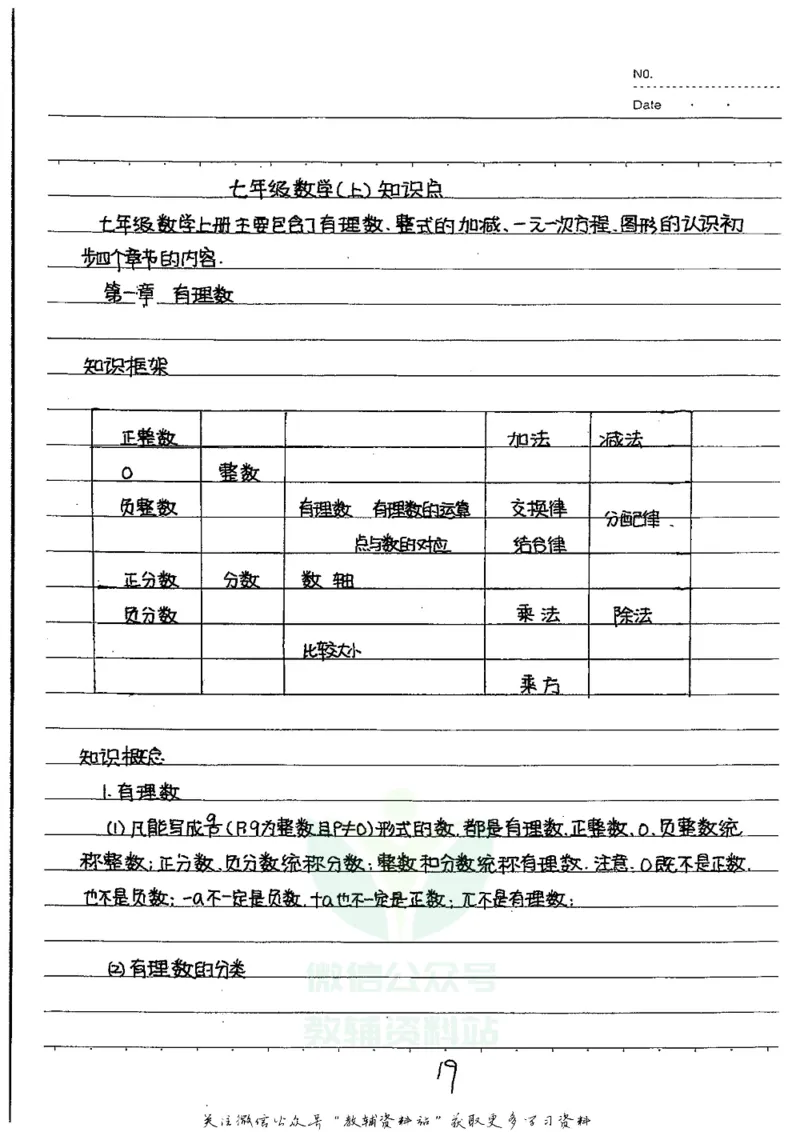 NO.
Date
七年级数学(上)知识点
七年级数学上册主要包含了有理数、整式的加减、一元一次方程、图形的认识初
步四个章节的内容.
第一章 有理数
知识框架
正整数 加法 减法
0 整数
负整数 有理数 有理数的运算 交换律 分配律
点与数的对应 结合律
正分数 分数 数轴
负分数 乘法 除法
比较大小
乘方
知识概念
1.有理数
(1)凡能写成q/p(P,q为整数且P≠0)形式的数,都是有理数,正整数、0、负整数统
称整数;正分数、负分数统称分数;整数和分数统称有理数.注意:0既不是正数,
也不是负数;-a不一定是负数,+a也不一定是正数;π不是有理数;
(2)有理数的分类
微信公众号
教辅资料站
19
关注微信公众号"教辅资料站"获取更多学习资料